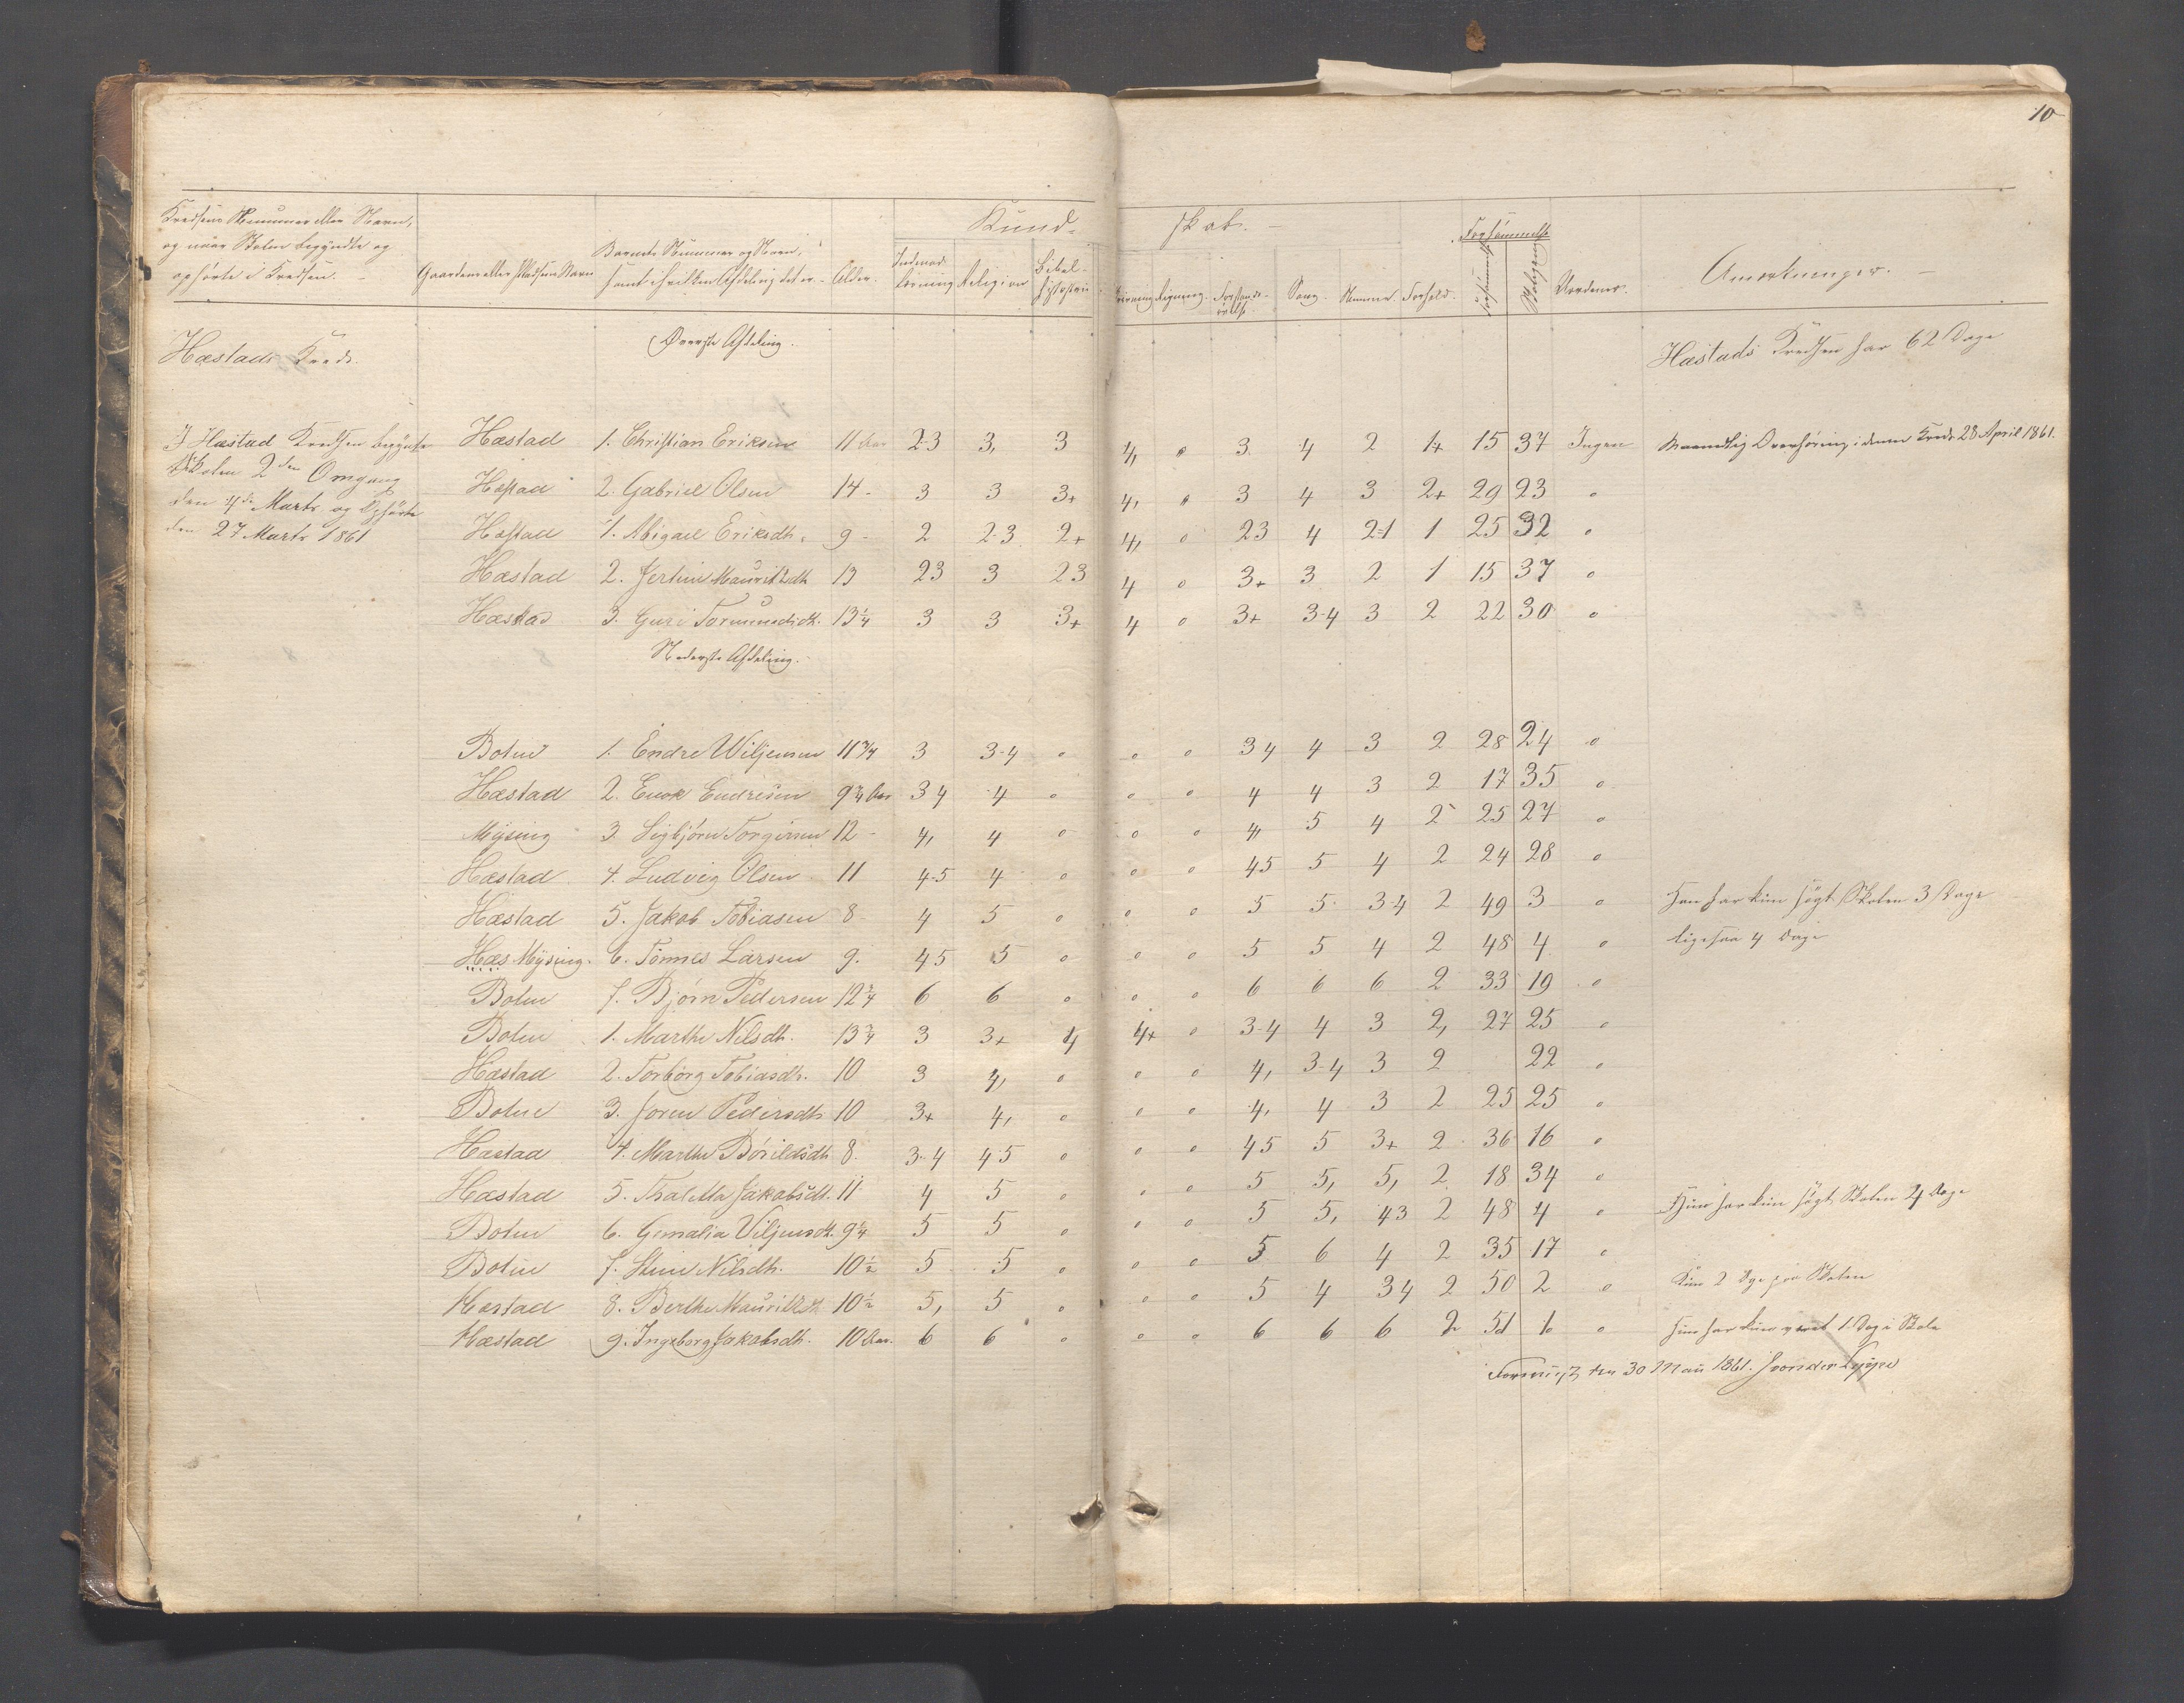 10
Kredsens Nummer eller Navn,
og naar Skolen begyndte og
ophørte i Kredsen. -
Gaardens eller Pladsens Navn
Barnets Nummer og Navn,
samt i hvilken Afdeling det er -
Alder.
Kund-
skab. -
Indenad-
læsning
Religion
Bibel-
historie
Skrivning
Regning.
Forstands-
øvelse
Sang.
Nemme.
Forhold.
Forsømmelse
Forsømmelse
Skolegang
Ordener.
Anmerkninger. -
Hæstads Kreds.
Øverste Afdeling.
Hæstads Kredsen har 62 Dage
I Hæstad Kredsen begyndte
Skolen 2den Omgang
den 4de Marts og ophørte
den 27 Marts 1861
Hæstad 1. Christian Eriksen 11 Aar 2-3 3, 3 4, " 3 4 2 1+ 15 37 Ingen Maanedlig Overhøring i denne Kreds 28 April 1861.
Hæstad 2. Gabriel Olsen 14 - 3 3 3+ 4, " 3 4 3 2+ 29 23 "
Hæstad 1. Abigael Eriksdh. 9 - 2 2-3 2+ 4, " 23 4 2-1 1 25 32 "
Hæstad 2. Jertine Mauritzdh 13 23 3 23 4 " 3+ 3 2 1 15 37 "
Hæstad 3. Guri Tormundsdt. 13 1/4 3 3 3+ 4 " 3+ 3-4 3 2 22 30 "
Nederste Afdeling.
Botne 1. Endre Wiljemsen 11 3/4 3 3-4 " " " 34 4 3 2 28 24 "
Hæstad 2. Enok Endresen 9 3/4 Aar 34 4 " " " 4 4 3 2 17 35 "
Mysing 3. Sigbjørn Torgersen 12 - 4, 4 " " " 4, 5 4 2 25 27 "
Hæstad 4. Ludvig Olsen 11 4-5 4 " " " 45 5 4 2 24 28 "
Hæstad 5. Jakob Tobiasen 8 - 4 5 " " " 5 5 34 2 49 3 " Han har kun søgt Skolen 3 Dage
Hæs Mysing. 6. Tønnes Larsen 9. 45 5 " " " 5 5 4 2 48 4 " ligesaa 4 Dage
Botne 7. Bjørn Pedersen 12 3/4 6 6 " " " 6 6 6 2 33 19 "
Botne 1. Marthe Nilsdh. 13 3/4 3 3+ 4 4+ " 3-4 4 3 2, 27 25 "
Hæstad 2. Torborg Tobiasdh. 10 3 4, " " " 4, 3-4 3 2 22 "
Botne 3. Joren Pedersdh 10 3+ 4, " " " 4, 4 3 2 25 25 "
Hæstad 4. Marthe Børildsdh 8. 3-4 45 " " " 45 5 3+ 2 36 16 "
Hæstad 5. Thaletta Jakobsdt. 11 4 5 " " " 5 5, 5, 2 18 34 "
Botne 6. Gemalia Viljemsdt. 9 1/4 5 5 " " " 5 5, 43 2 48 4 " Hun har kun søgt Skolen 4 Dage
Botne 7. Stine Nilsdh. 10 1/2 5 5 " " " 5 6 4 2 35 17 "
Hæstad 8. Berthe Mauritzdt. 10 1/2 5, 5 " " " 5 4 34 2 50 2 " Kun 2 Dage paa Skolen
Hæstad 9. Ingeborg Jakobsdh. 10 Aar. 6 6 " " " 6 6 6 2 51 1 " Hun har kun været 1 Dag i Skole
Forevist den 30 Mai 1861.